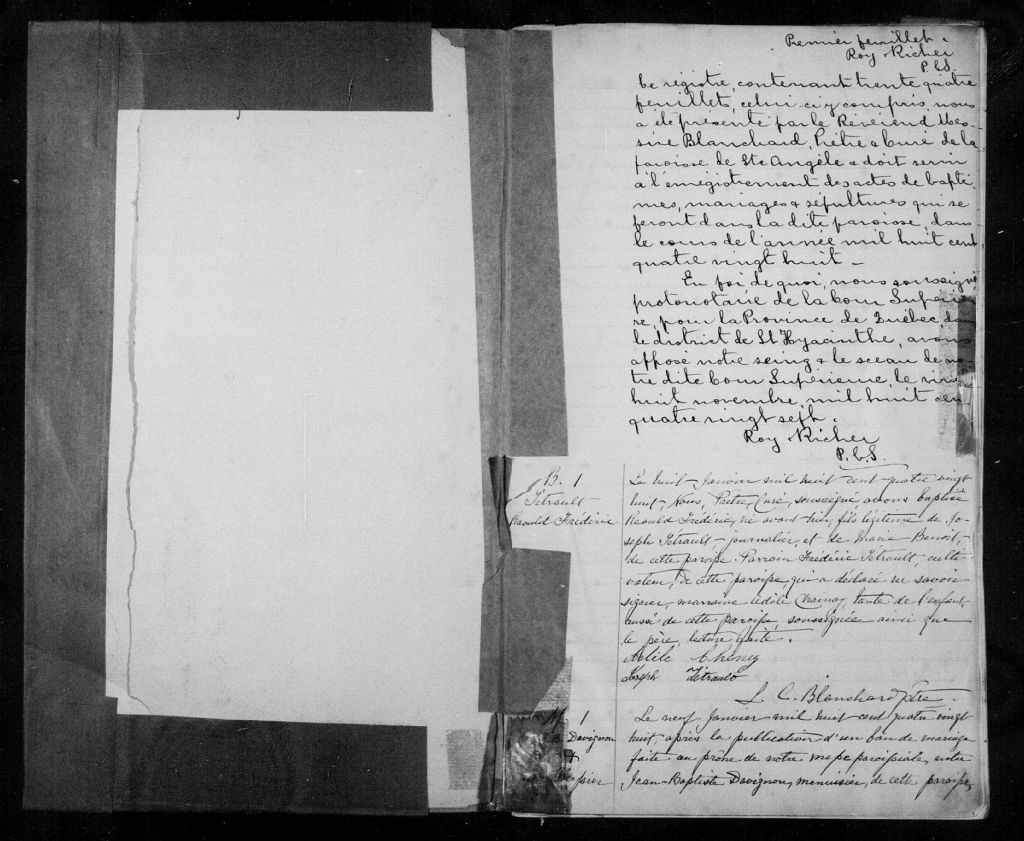 Premier feuillet.
Roy Richer
P.C.S.
Ce régistre, contenant trente quatre
feuillets, celui ci y compris, nous
a été présenté par le Révérend Mes-
sire Blanchard, Prêtre & Curé de la
paroisse de Ste Angèle & doit servir
à l'enrégistrement des actes de baptê-
mes, mariages & sépultures qui se
feront dans la dite paroisse, dans
le cours de l'année mil huit cent
quatre vingt huit —
En foi de quoi, nous soussigné,
protonotaire de la Cour Supérieu-
re, pour la Province de Québec, dans
le district de St Hyacinthe, avons
apposé notre seing & le sceau de no-
tre dite Cour Supérieure, le vingt
huit novembre, mil huit cent
quatre vingt sept.
Roy Richer
P.C.S.
B. 1
Tétrault
Raould Frédéric
Le huit Janvier mil huit cent quatre vingt
huit, Nous, Prêtre, Curé, soussigné, avons baptisé
Raould Frédéric, né avant hier, fils légitime de Jo-
seph Tétrault, journalier, et de Marie Benoit,
de cette paroisse. Parrain Frédéric Tétrault, culti-
vateur, de cette paroisse, qui a déclaré ne savoir
signer, marraine Adile Chainay, tante de l'enfant,
aussi de cette paroisse, soussignée ainsi que
le père, lecture faite.
Adile Cheney
Joseph Tétrault
L. C. Blanchard Ptre
M. 1
J.B. Davignon
&
Le neuf Janvier mil huit cent quatre vingt
huit, après la publication d'un ban de mariage
faite au prône de notre messe paroissiale, entre
Jean-Baptiste Davignon, menuisier, de cette paroisse,